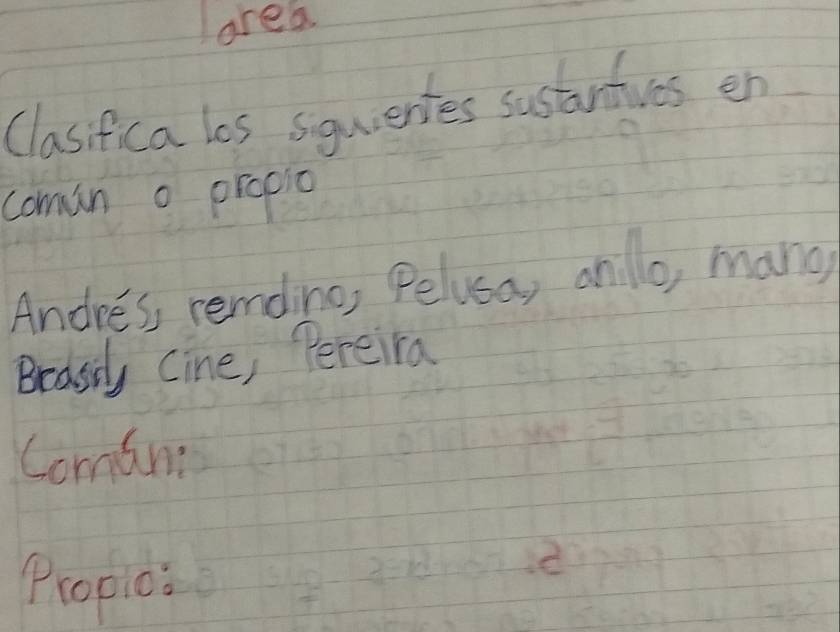 Tarea
Clasifica los siguientes sustantivos en
común o propio
Andrés, remolino, Pelusa, anillo, mano,
Brasil, cine, Pereira
Común:
Propio: